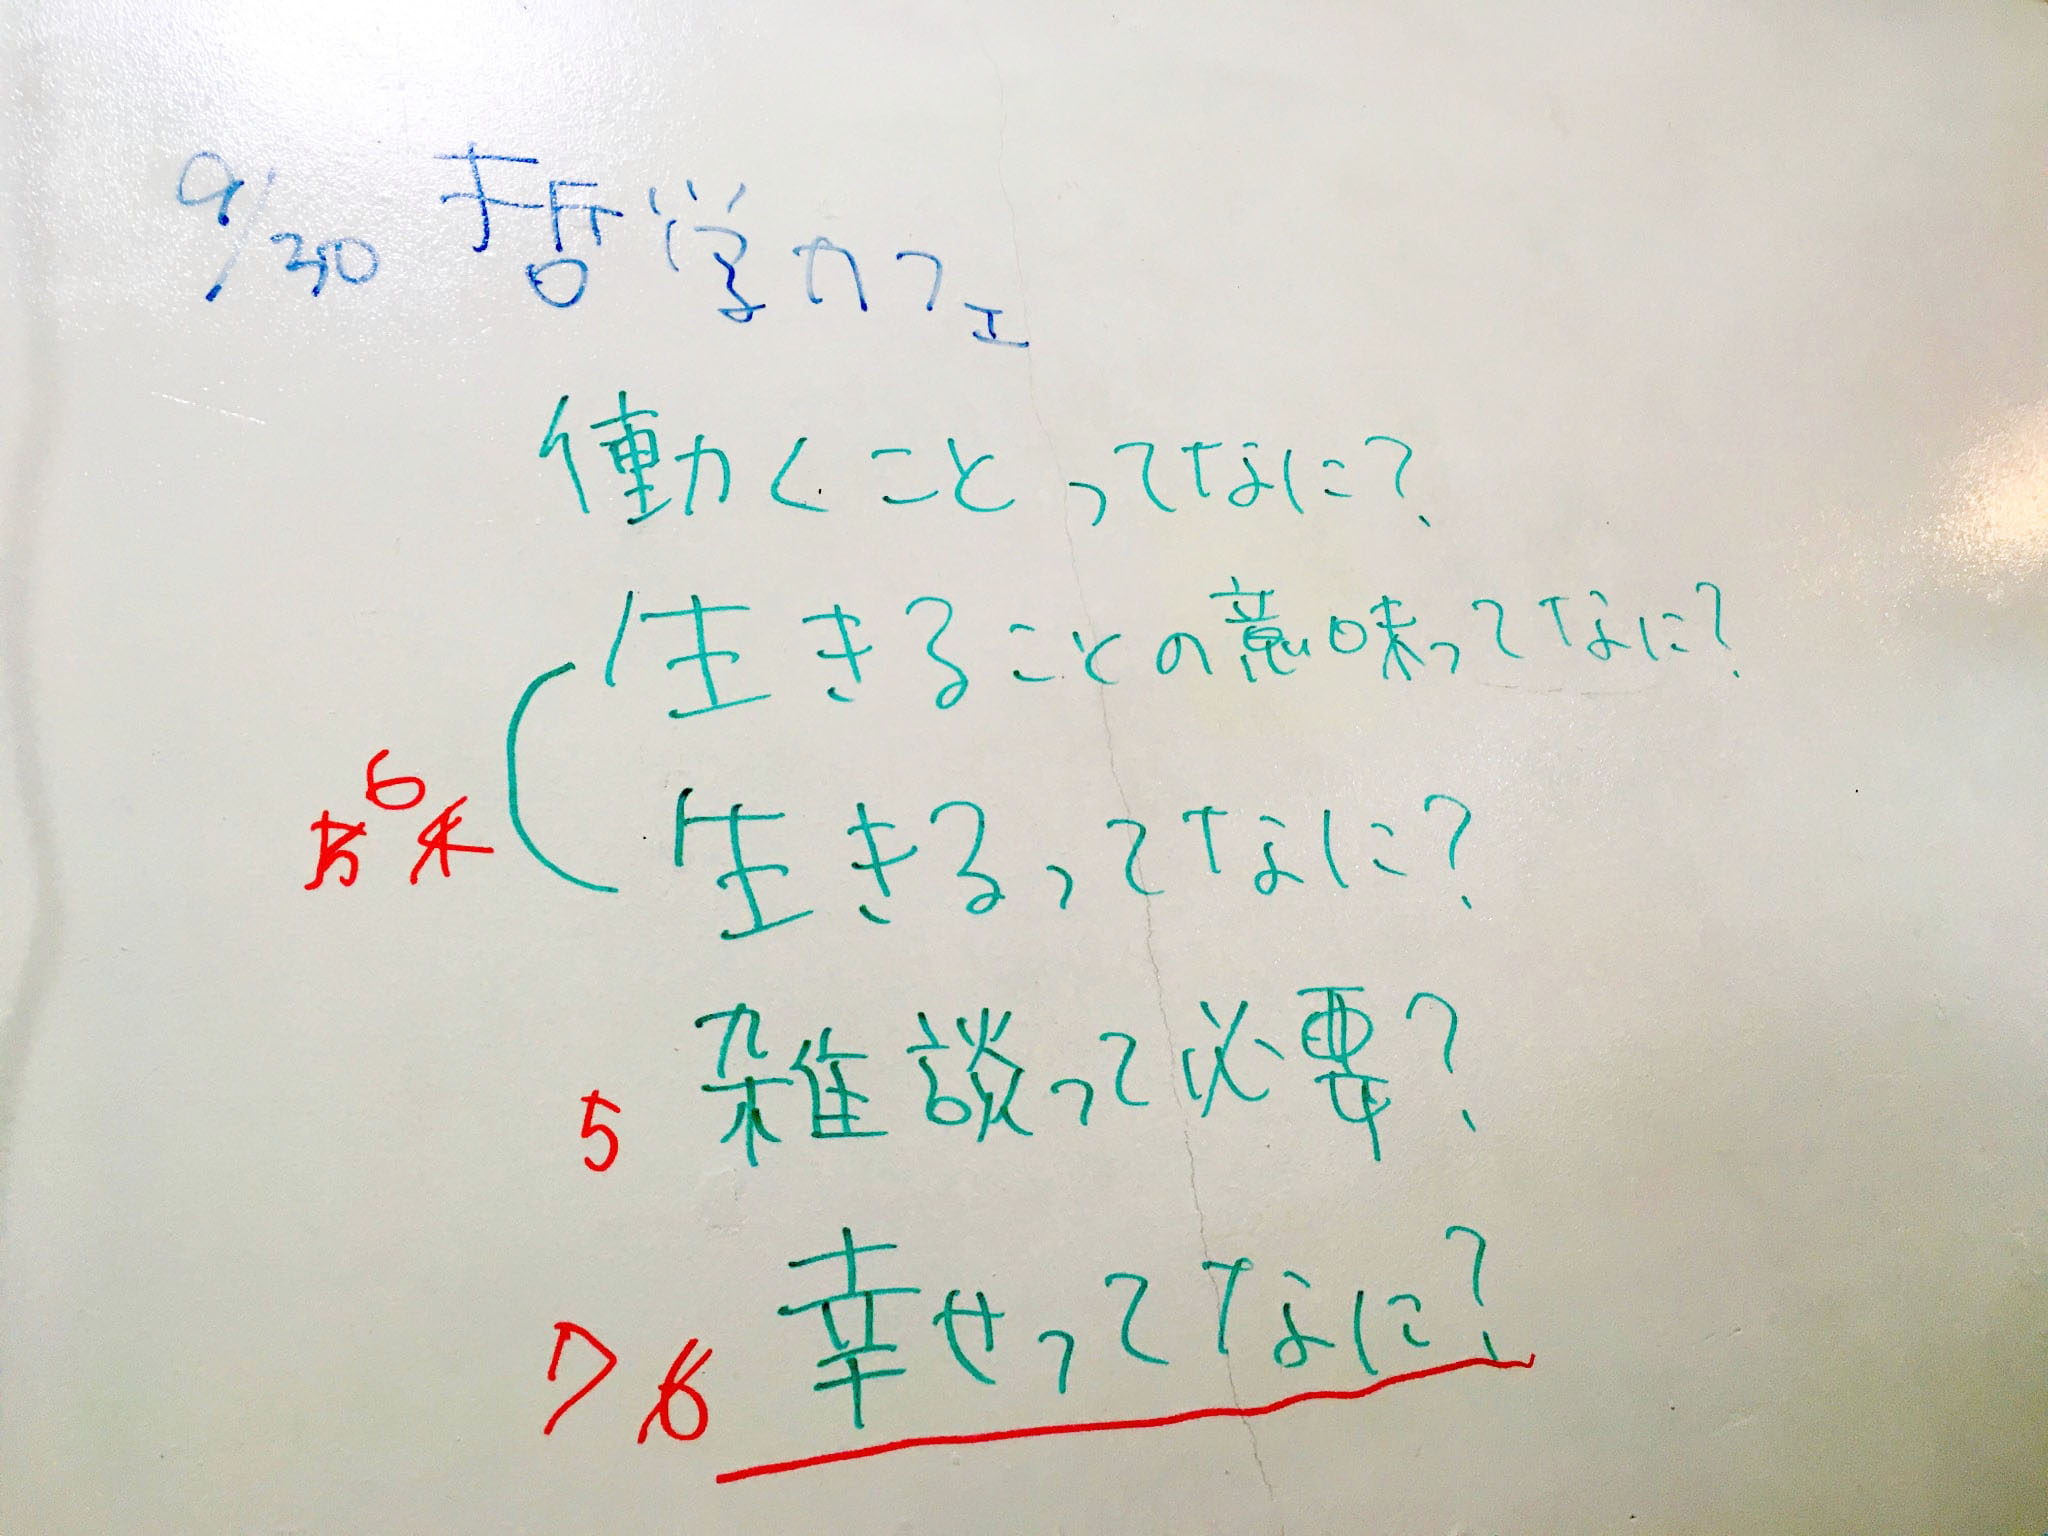 9/30 哲学カフェ
働くことってなに?
生きることの意味ってなに?
6
生きるってなに?
5 雑談って必要?
7 6 幸せってなに?